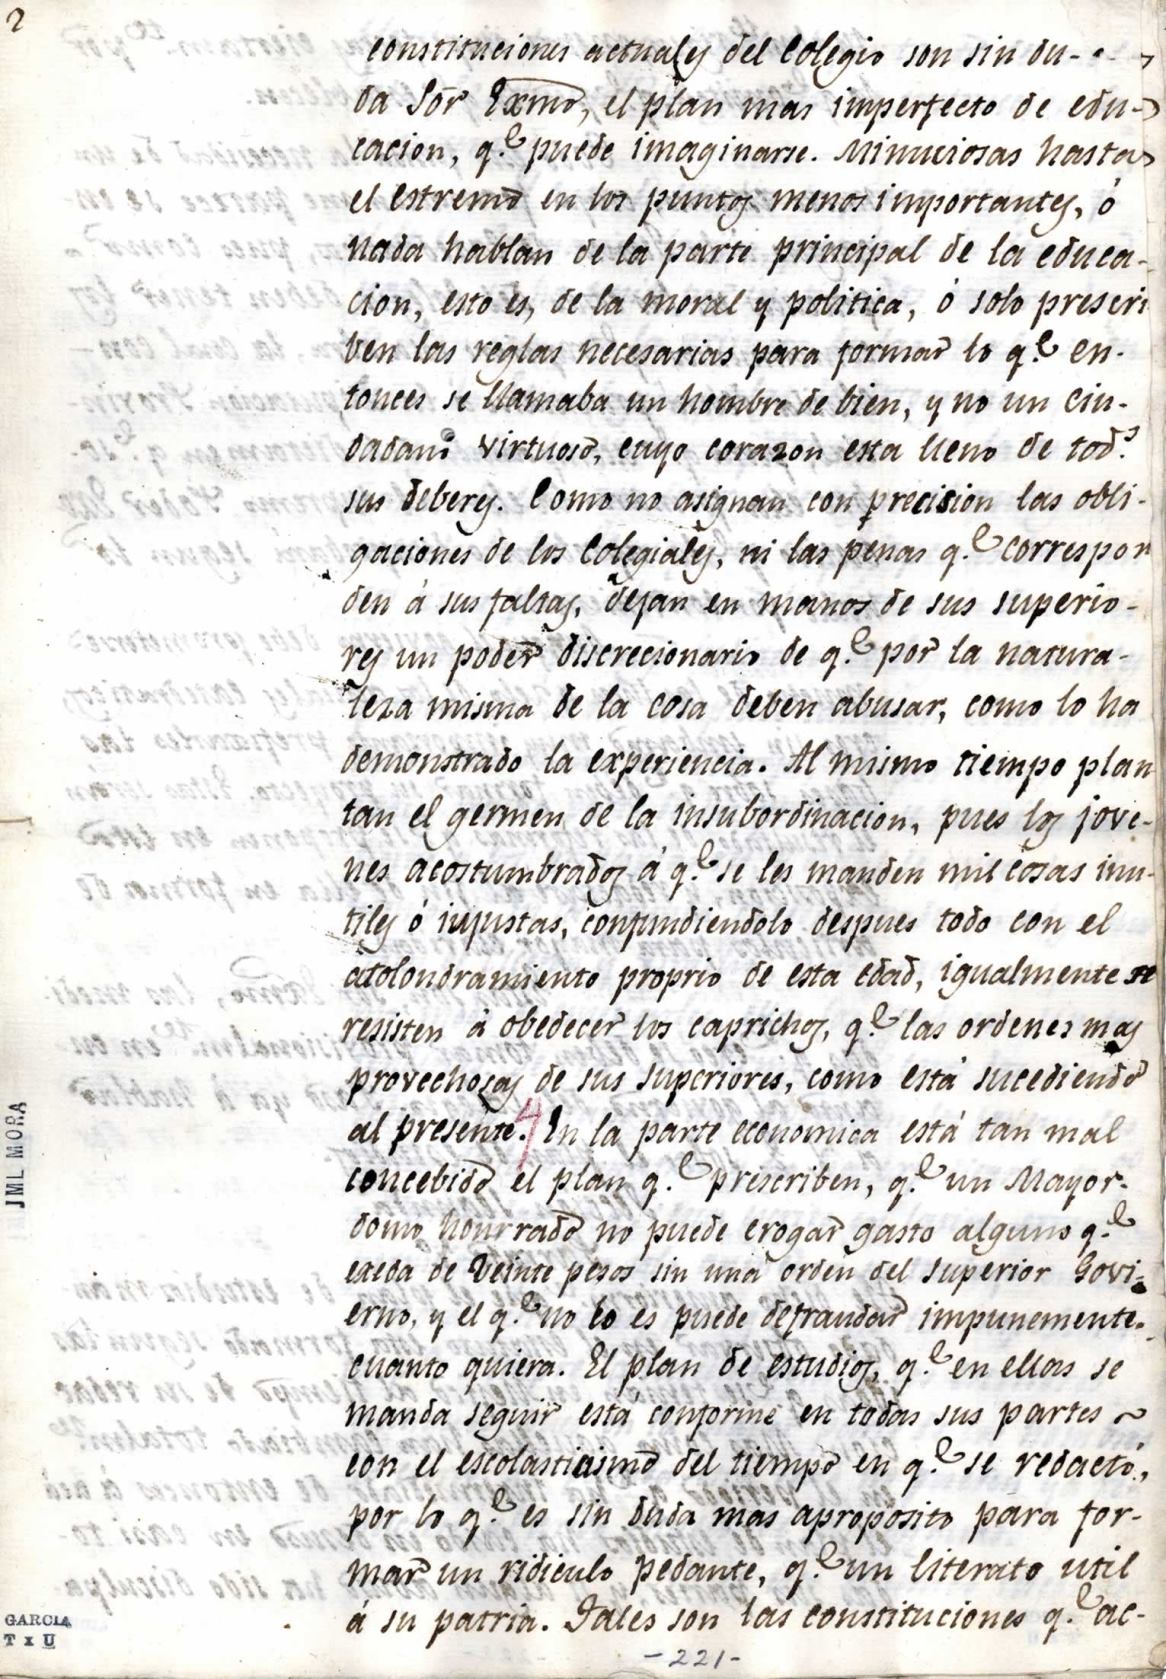 2
constituciones actuales del Colegio son sin du-
da Sõr Exmõ, el plan mas imperfecto de edu-
cacion, q.e puede imaginarse. Minuciosas hasta
el estremo en los puntos menos importantes, ó
nada hablan de la parte principal de la educa-
cion, esto es, de la moral y politica, ó solo prescri
ben las reglas necesarias para formar lo q.e en-
tonces se llamaba un hombre de bien, y no un ciu-
dadano virtuoso, cuyo corazon esta lleno de tod.s
sus deberes. Como no asignan con precision las obli-
gaciones de los Colegiales, ni las penas q.e correspon
den á sus faltas, dejan en manos de sus superio-
res un poder discrecionario de q.e por la natura-
leza misma de la cosa deben abusar, como lo ha
demonstrado la experiencia. Al mismo tiempo plan
tan el germen de la insubordinacion, pues los jove-
nes acostumbrados á q.e se les manden mil cosas inu-
tiles ó injustas, confundiendolo despues todo con el
atolondramiento proprio de esta edad, igualmente se
resisten á obedecer los caprichos, q.e las ordenes mas
provechosas de sus superiores, como está sucediendo
al presente. En la parte economica está tan mal
concebido el plan q.e prescriben, q.e un Mayor-
domo honrrado no puede erogar gasto alguno q.e
exeda de Veinte pesos sin una orden del superior Govi-
erno, y el q.e no lo es puede defraudar impunemente
cuanto quiera. El plan de estudios, q.e en ellas se
manda seguir está conforme en todas sus partes
con el escolasticismo del tiempo en q.e se redactó,
por lo q.e es sin duda mas aproposito para for-
mar un ridiculo pedante, q.e un literato util
á su patria. Tales son las constituciones q.e ac-
-221-
JML MORA
GARCIA
T x U